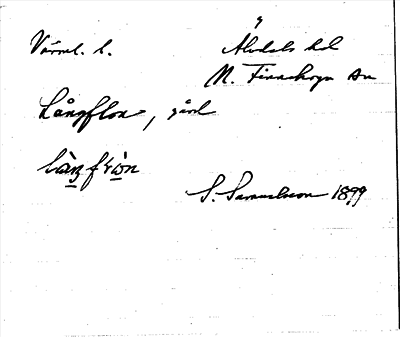 Värml. l. Älvdals hd
N. Finnskoga sn
Långflon, gård
S. Samuelsson 1899